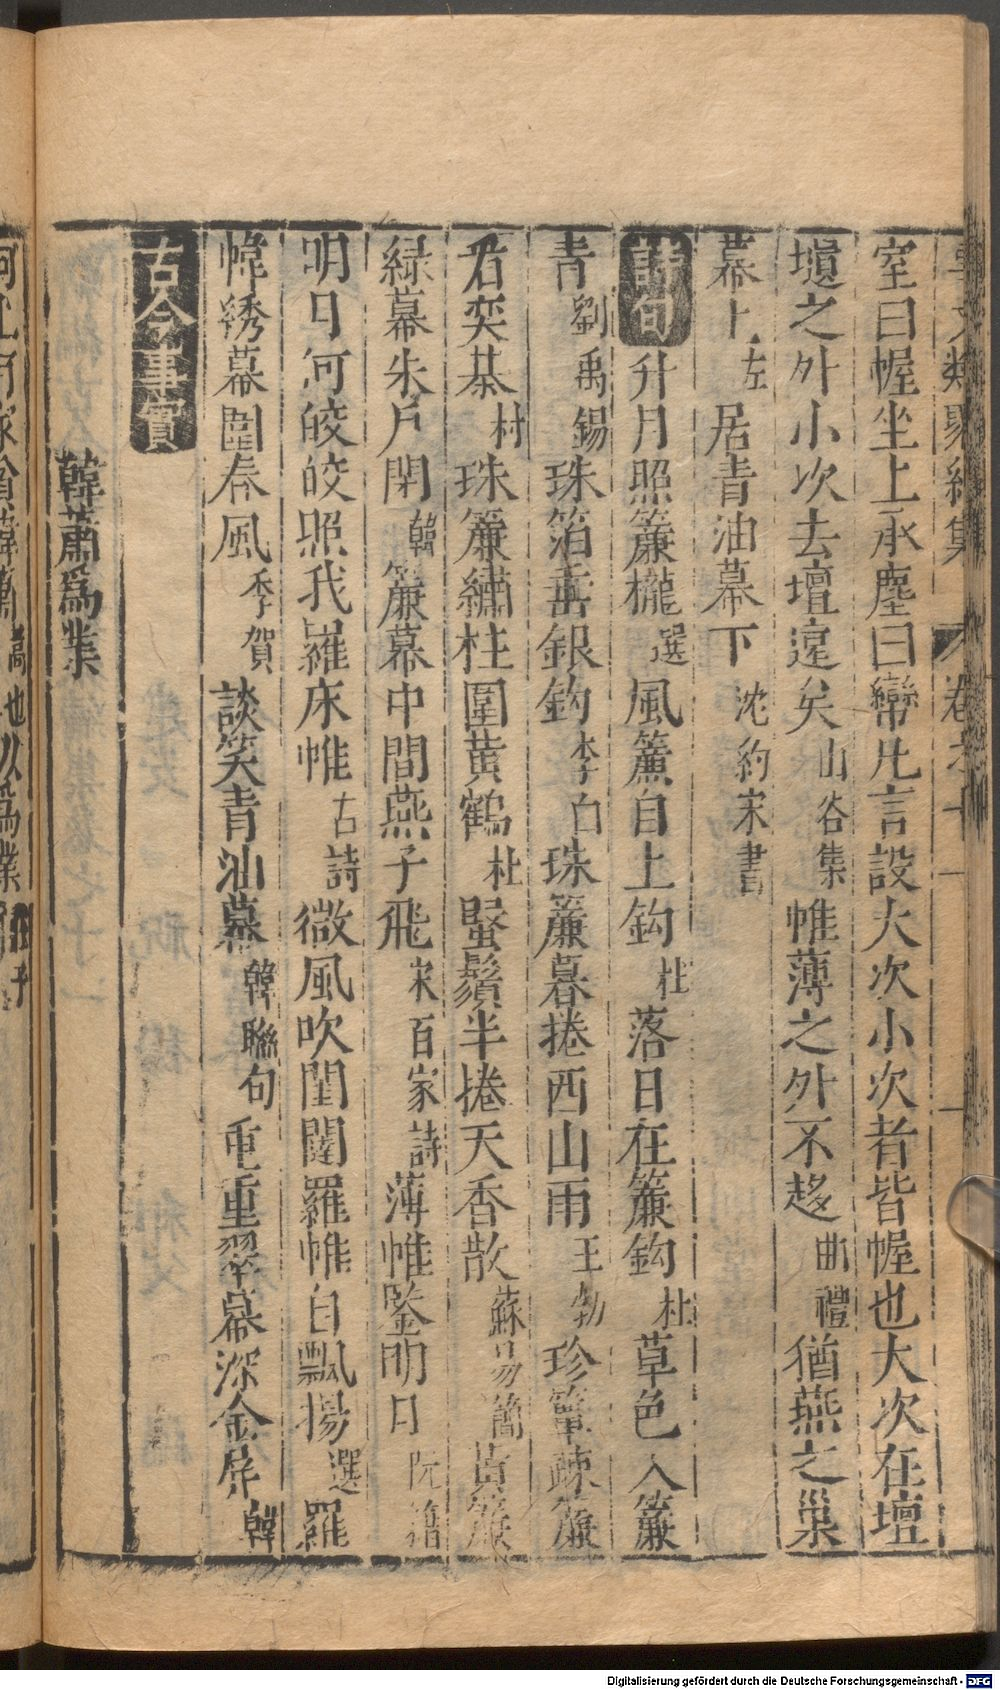 室曰幄坐上承塵曰帟此言設大次小次者皆幄也大次在壇
壝之外小次去壇遠矣山谷集帷薄之外不趍曲禮猶燕之巢
幕上左居青油幕下沈約宋書
詩句升月照簾櫳選風簾自上鈎杜落日在簾鈎杜草色入簾
青劉禹錫珠箔垂銀鈎李白珠簾暮捲西山雨王勃珍簟疎簾
看奕棊村珠簾繡柱圍黄鶴杜蝦鬚半捲天香散蘇易簡
緑幕朱戶閉韓簾幕中間燕子飛宋百家詩薄帷鑒明月阮籍
明月何皎皎照我羅床帷古詩微風吹閨闥羅帷自飄揚選羅
幃綉幕圍春風李賀談笑青油幕韓聯句重重翠幕深金屏韓
古今事實
韓蕭為業
Digitalisierung gefördert durch die Deutsche Forschungsgemeinschaft - DFG